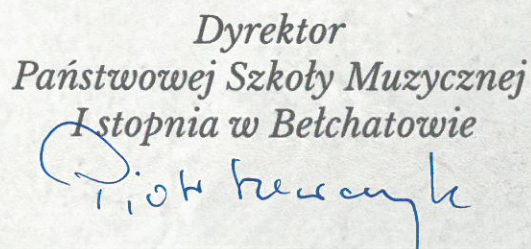 Dyrektor
Państwowej Szkoły Muzycznej
I stopnia w Bełchatowie
Piotr